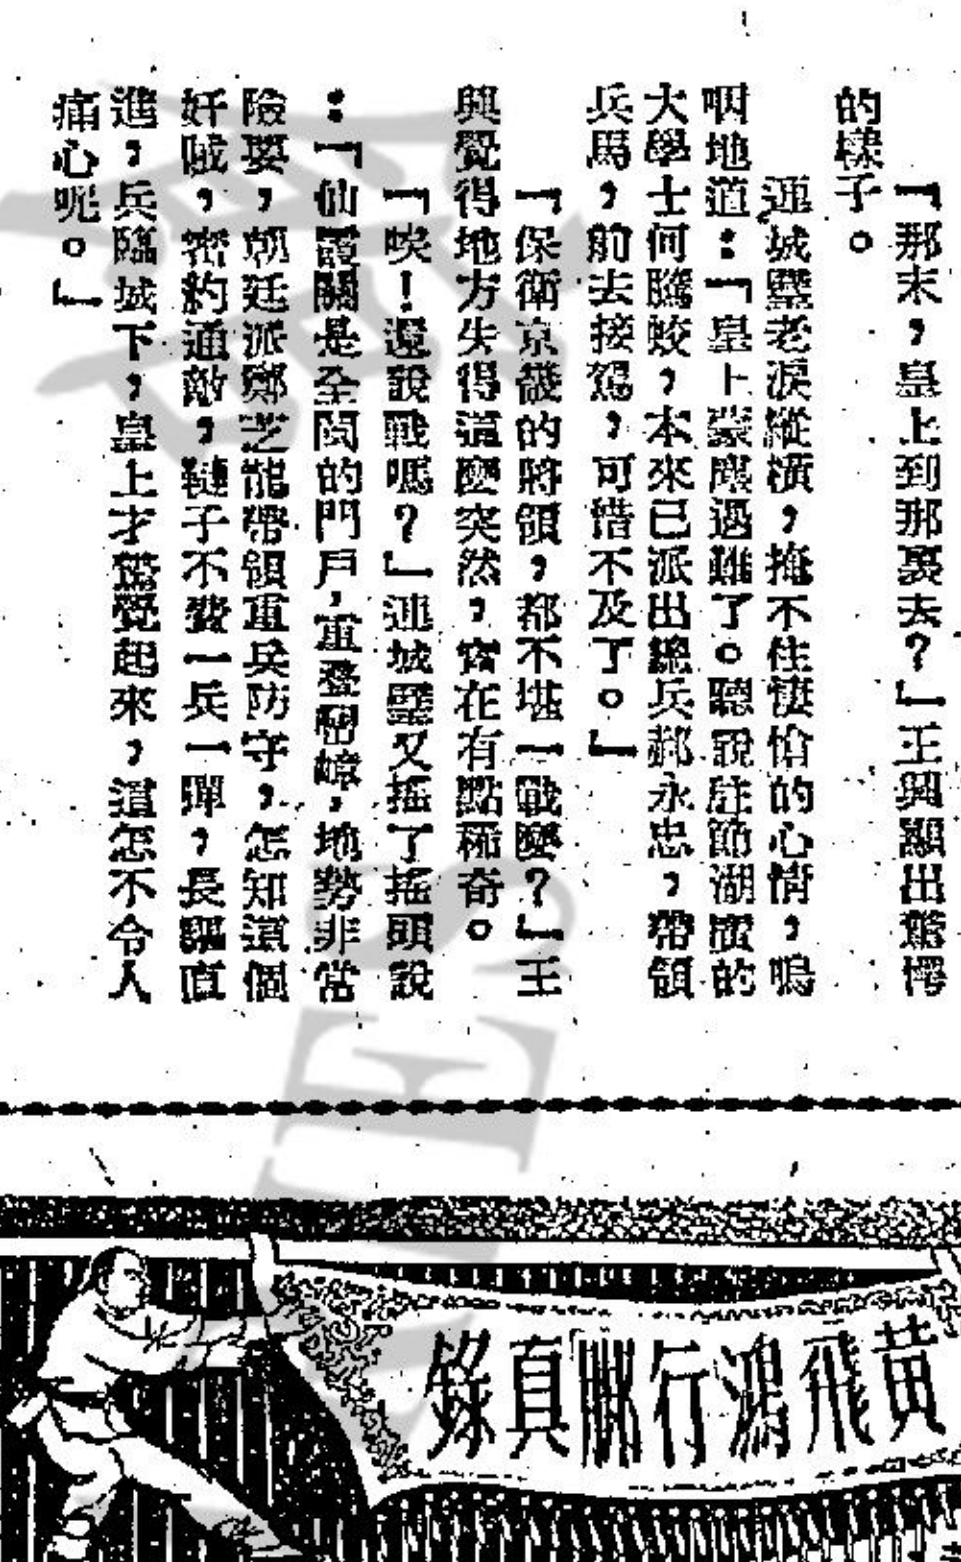 「那末，皇上到那裏去？」王興顯出驚愕
的樣子。
連城璧老淚縱橫，掩不住悽愴的心情，嗚
咽地道：「皇上蒙塵遇難了。聽說駐節湖廣的
大學士何騰蛟，本來已派出總兵郝永忠，帶領
兵馬，前去接駕，可惜不及了。」
「保衛京畿的將領，都不堪一戰麼？」王
興覺得地方失得這麼突然，實在有點稀奇。
「唉！還說戰嗎？」連城璧又搖了搖頭說
：「仙霞關是全閩的門戶，重巒疊嶂，地勢非常
險要，朝廷派鄭芝龍帶領重兵防守，怎知這個
奸賊，密約通敵，韃子不費一兵一彈，長驅直
進，兵臨城下，皇上才驚覺起來，這怎不令人
痛心呢。」
黃飛鴻行脚真錄